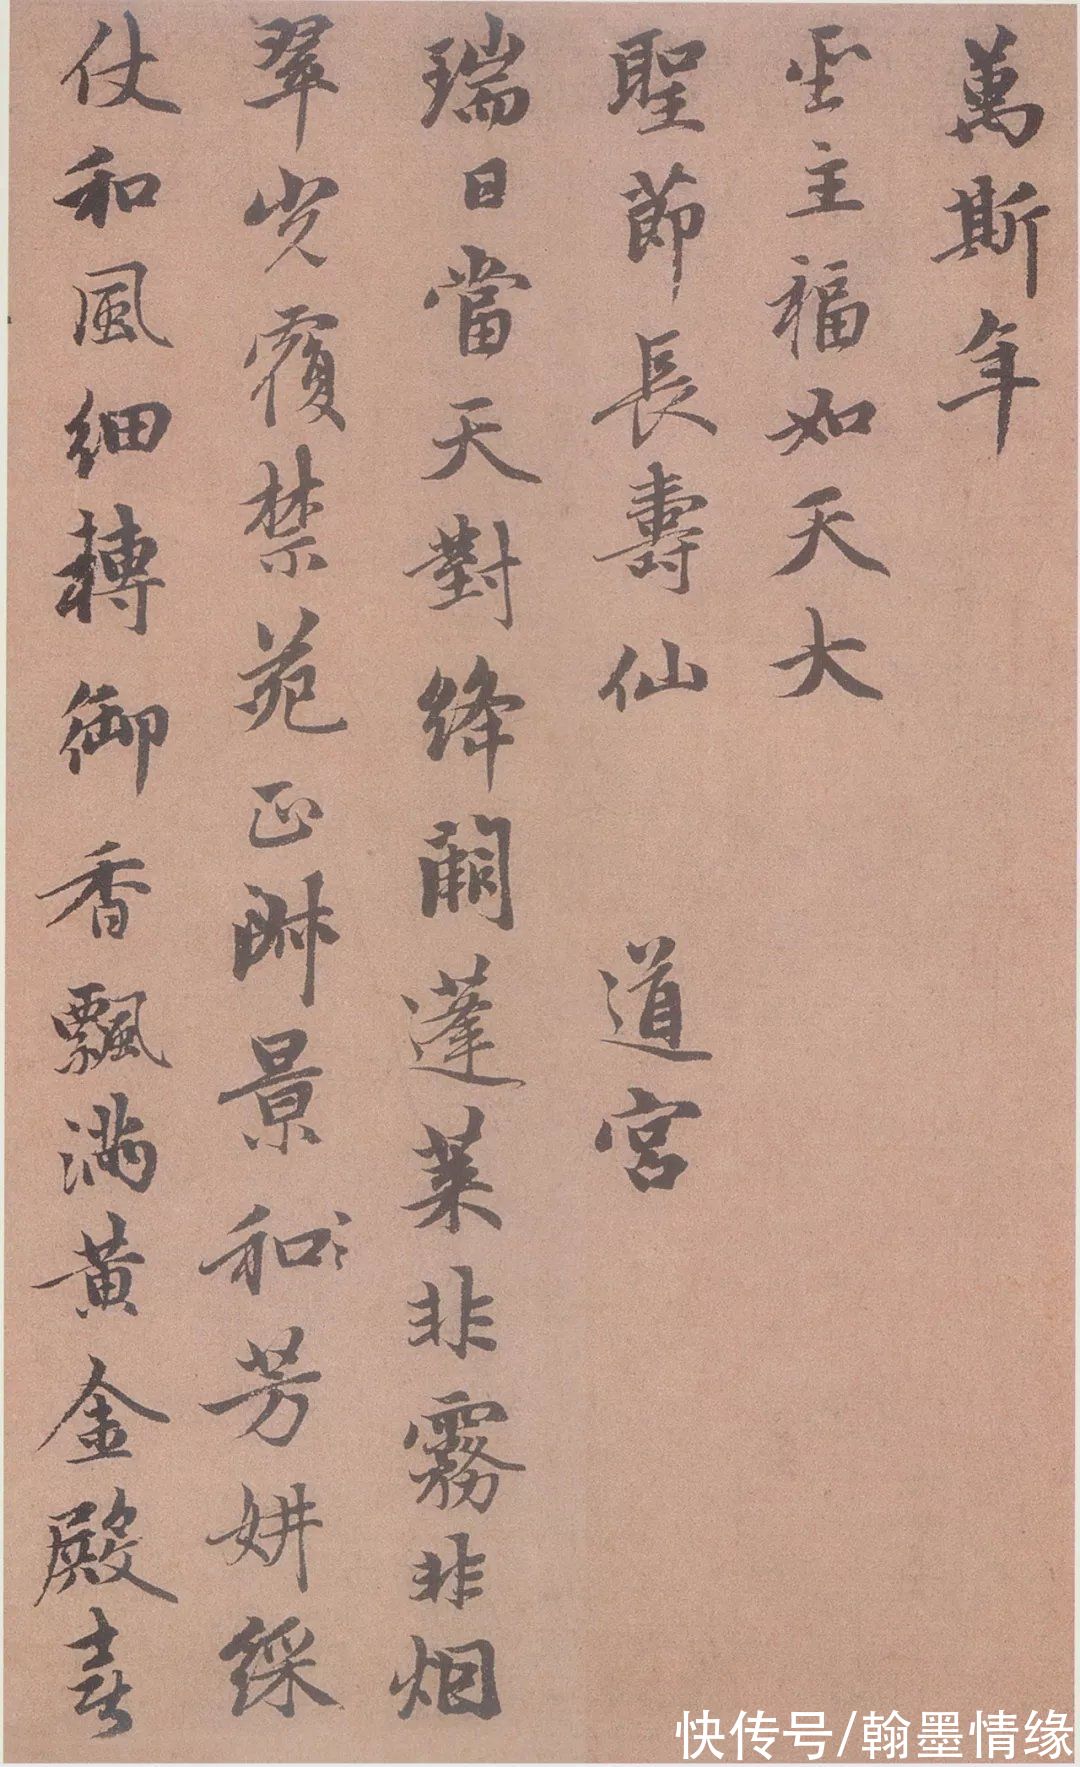 萬斯年
聖主福如天大
聖節長壽仙　道宮
瑞日當天對絳闕蓬萊非霧非烟
翠光覆禁苑正淑景和芳妍綵
仗和風細轉御香飄滿黃金殿喜
快传号/翰墨情缘